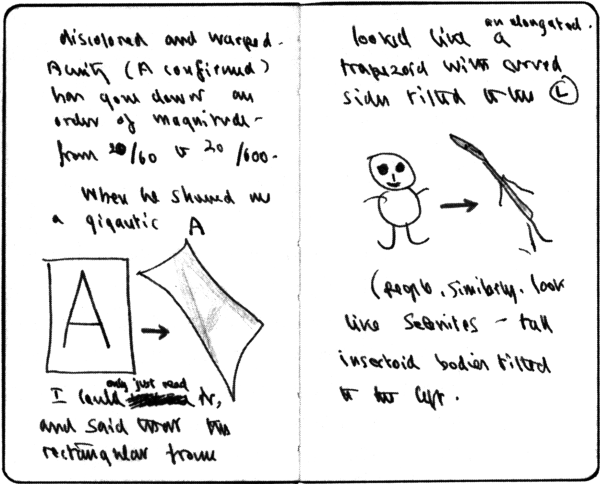 discolored and warped.
Acuity (A confirmed)
has gone down an
order of magnitude -
from 20/60 to 20/600.
When he showed me
a gigantic A
A
only just read
I could it,
and said that the
rectangular frame
looked like an elongated
trapezoid with curved
sides tilted to the L
(People, similarly, look
like Selenites - tall
insectoid bodies tilted
to the left.